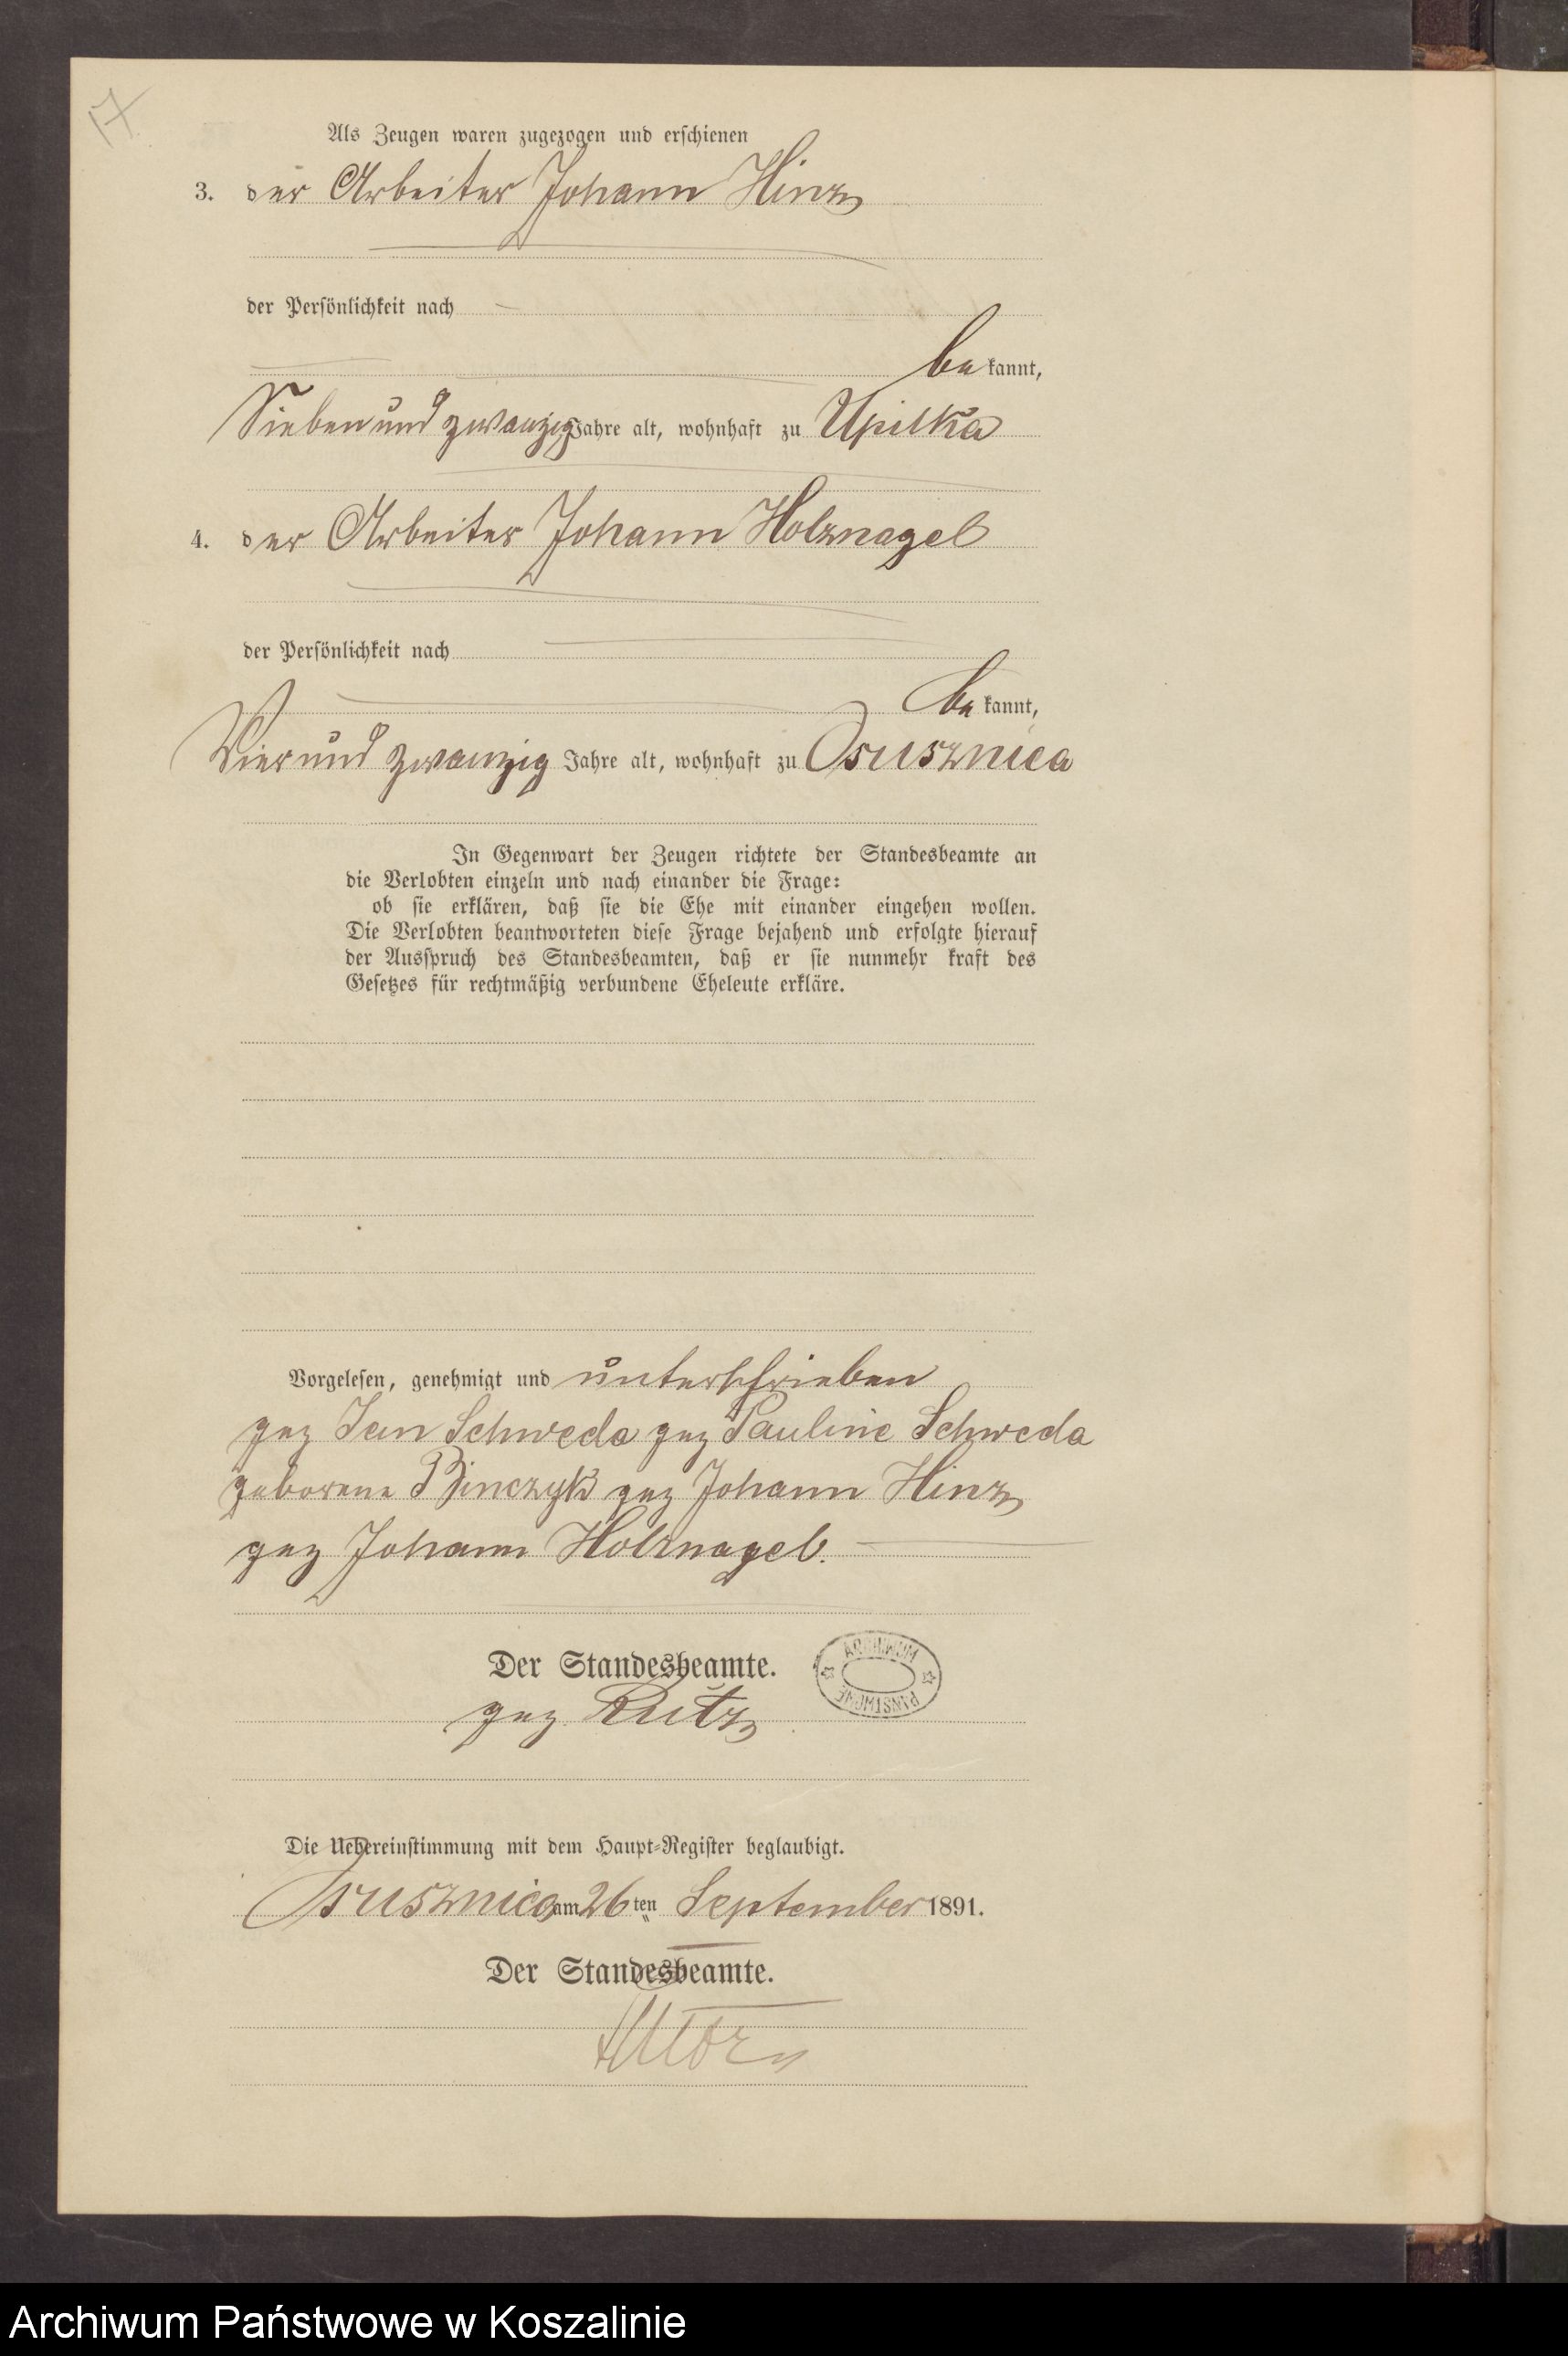 17
Als Zeugen waren zugezogen und erschienen
3. der Arbeiter Johann Hinz
der Persönlichkeit nach
bekannt,
Sieben und zwanzig Jahre alt, wohnhaft zu Upilka
4. der Arbeiter Johann Holznagel
der Persönlichkeit nach
bekannt,
Vier und zwanzig Jahre alt, wohnhaft zu Osusznica
In Gegenwart der Zeugen richtete der Standesbeamte an
die Verlobten einzeln und nach einander die Frage:
ob sie erklären, daß sie die Ehe mit einander eingehen wollen.
Die Verlobten beantworteten diese Frage bejahend und erfolgte hierauf
der Ausspruch des Standesbeamten, daß er sie nunmehr kraft des
Gesetzes für rechtmäßig verbundene Eheleute erkläre.
Vorgelesen, genehmigt und unterschrieben
gez Jan Schweda gez Pauline Schweda
geborene Binczyk gez Johann Hinz
gez Johann Holznagel.
Der Standesbeamte.
ARCHIWUM PAŃSTWOWE
gez Rutz
Die Uebereinstimmung mit dem Haupt-Register beglaubigt.
Osusznica am 26 ten September 1891.
Der Standesbeamte.
Archiwum Państwowe w Koszalinie